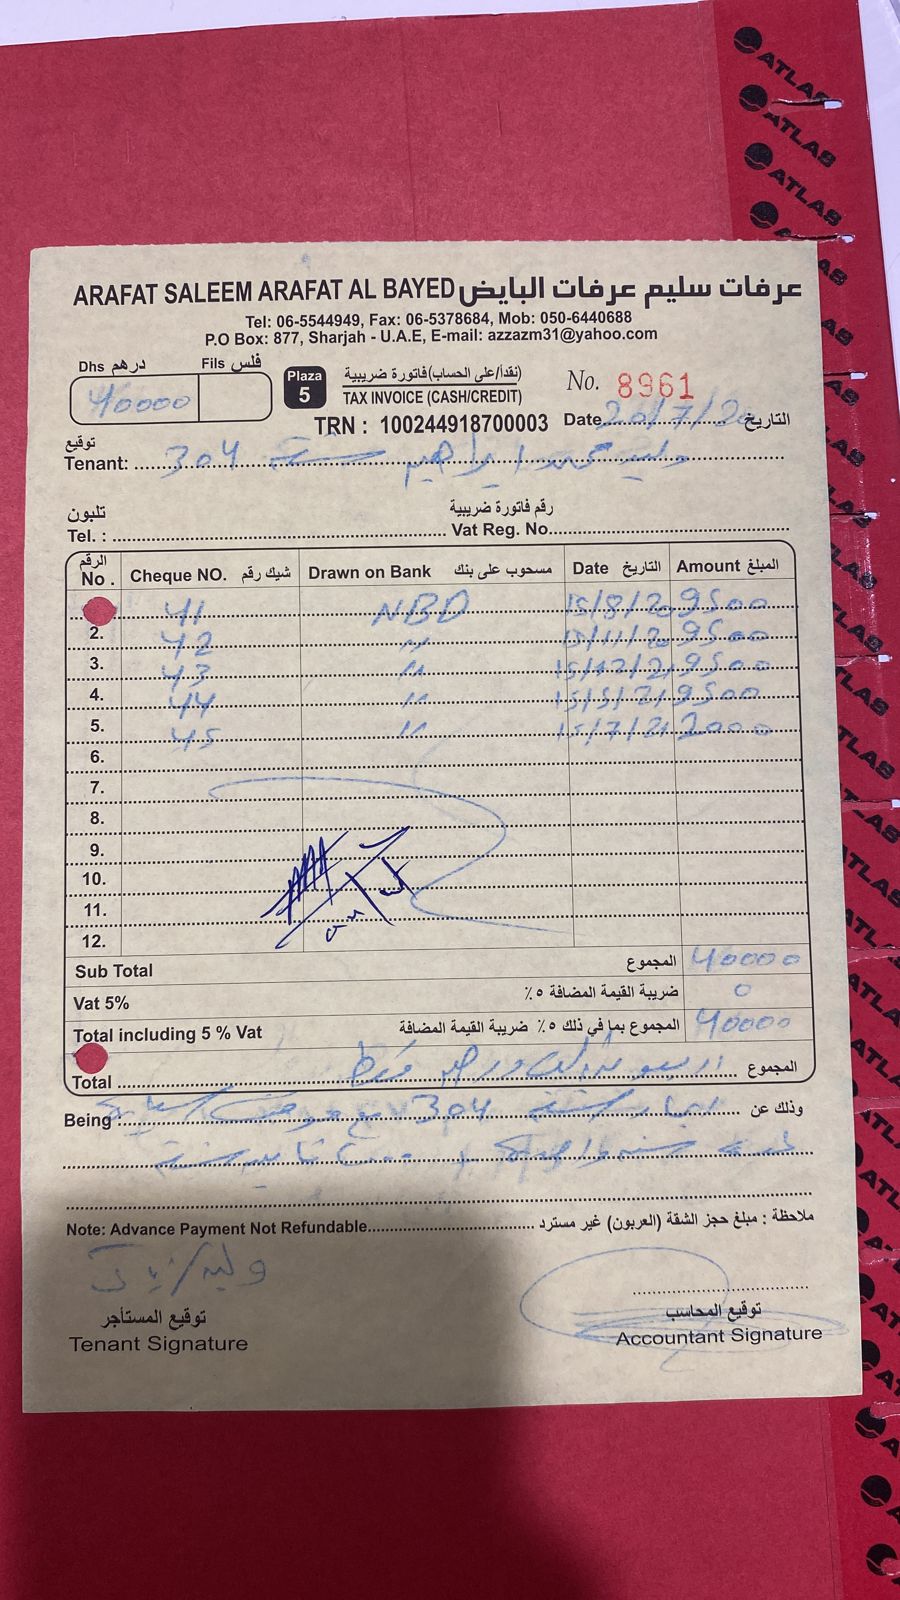 ATLAS
ATLAS
ATLAS
ATLAS
ARAFAT SALEEM ARAFAT AL BAYED عرفات سليم عرفات البايض
Tel: 06-5544949, Fax: 06-5378684, Mob: 050-6440688
P.O Box: 877, Sharjah - U.A.E, E-mail: azzazm31@yahoo.com
Dhs درهم Fils فلس
40000
Plaza 5
(نقداً/على الحساب) فاتورة ضريبية
TAX INVOICE (CASH/CREDIT)
No. 8961
TRN : 100244918700003 Date 20/7/20 التاريخ
توقيع
Tenant: وليد محمد ابراهيم 304
تلبون رقم فاتورة ضريبية
Tel. : Vat Reg. No.
الرقم No. Cheque NO. شيك رقم Drawn on Bank مسحوب على بنك Date التاريخ Amount المبلغ
41 NBD 15/8/20 9500
2. 42 " 15/11/20 9500
3. 43 " 9500
4. 44 " 15/5/21 9500
5. 45 " 15/7/21 2000
6.
7.
8.
9.
10.
11.
12.
Sub Total المجموع 40000
Vat 5% ضريبة القيمة المضافة ٥٪ 0
Total including 5 % Vat المجموع بما في ذلك ٥٪ ضريبة القيمة المضافة 40000
Total المجموع
Being : 304 وذلك عن
Note: Advance Payment Not Refundable ملاحظة : مبلغ حجز الشقة (العربون) غير مسترد
توقيع المستأجر توقيع المحاسب
Tenant Signature Accountant Signature